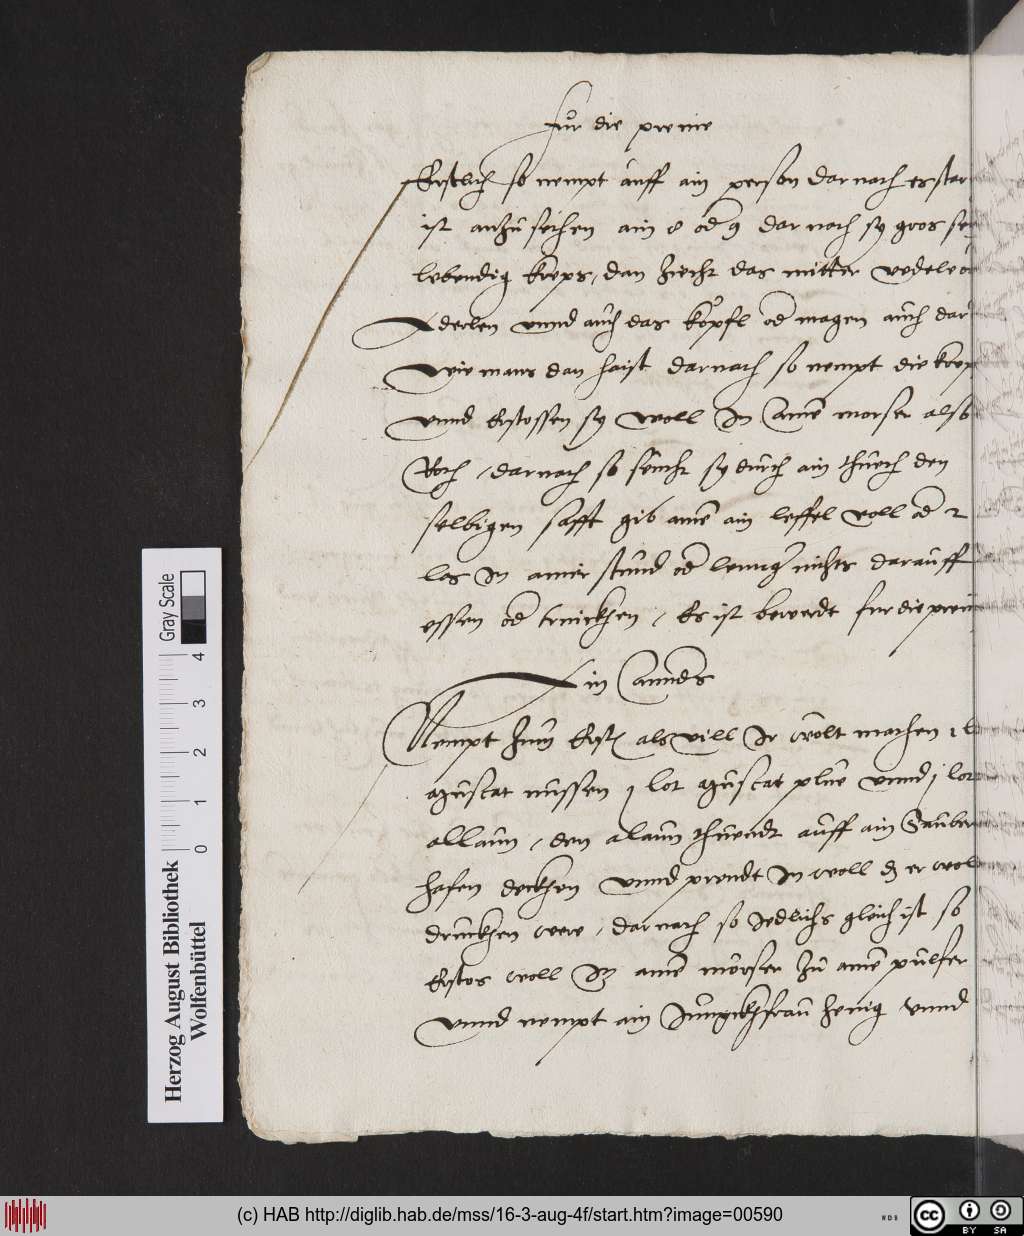 für die preine
Erstlich so nempt auff ain person darnach er starck
ist anzusechen ain 8 od 9 darnach sy gros sei
lebendig kreps, dan ziecht das mitter
Aderlen unnd auch das köpfl od magen auch dar
wie mans dan haist darnach so nempt die krep
unnd Erstossen sy woll In ainē morser also
Roch, darnach so seücht sy durch ain thuech den
selbigen safft gib ainē ain leffel voll od 2
las In ainer stund od lenng nichts darauff
essen od trinckhen, Es ist bewerdt fur die prein
Ain annds
Nempt zum Erstē als vill Ir wölt machen 1
muscat nussen 1 lot muscat plüe unnd 1 lot
allaun, den alaun thuendt auff ain Sauber
hafen deckhen unnd prendt In woll dz er wol
druckhen were, darnach so Iedlichs gleich ist so
Erstos woll In ainē mörser zu ainē pulfer
unnd nempt ain Junckhfrau henig unnd
Gray Scale
0 1 2 3 4
Herzog August Bibliothek
Wolfenbüttel
(c) HAB http://diglib.hab.de/mss/16-3-aug-4f/start.htm?image=00590
WDB
cc BY SA